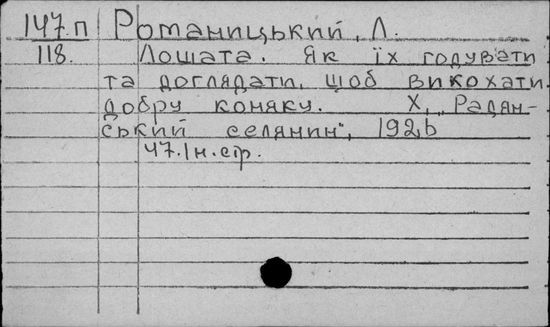 147.п Ротаницький, Л.
118. Лошата. Як їх годувати
та доглядати, щоб викохати
добру коняку. Х, „Радян-
ський селянин", 1926
47.1н.стр.